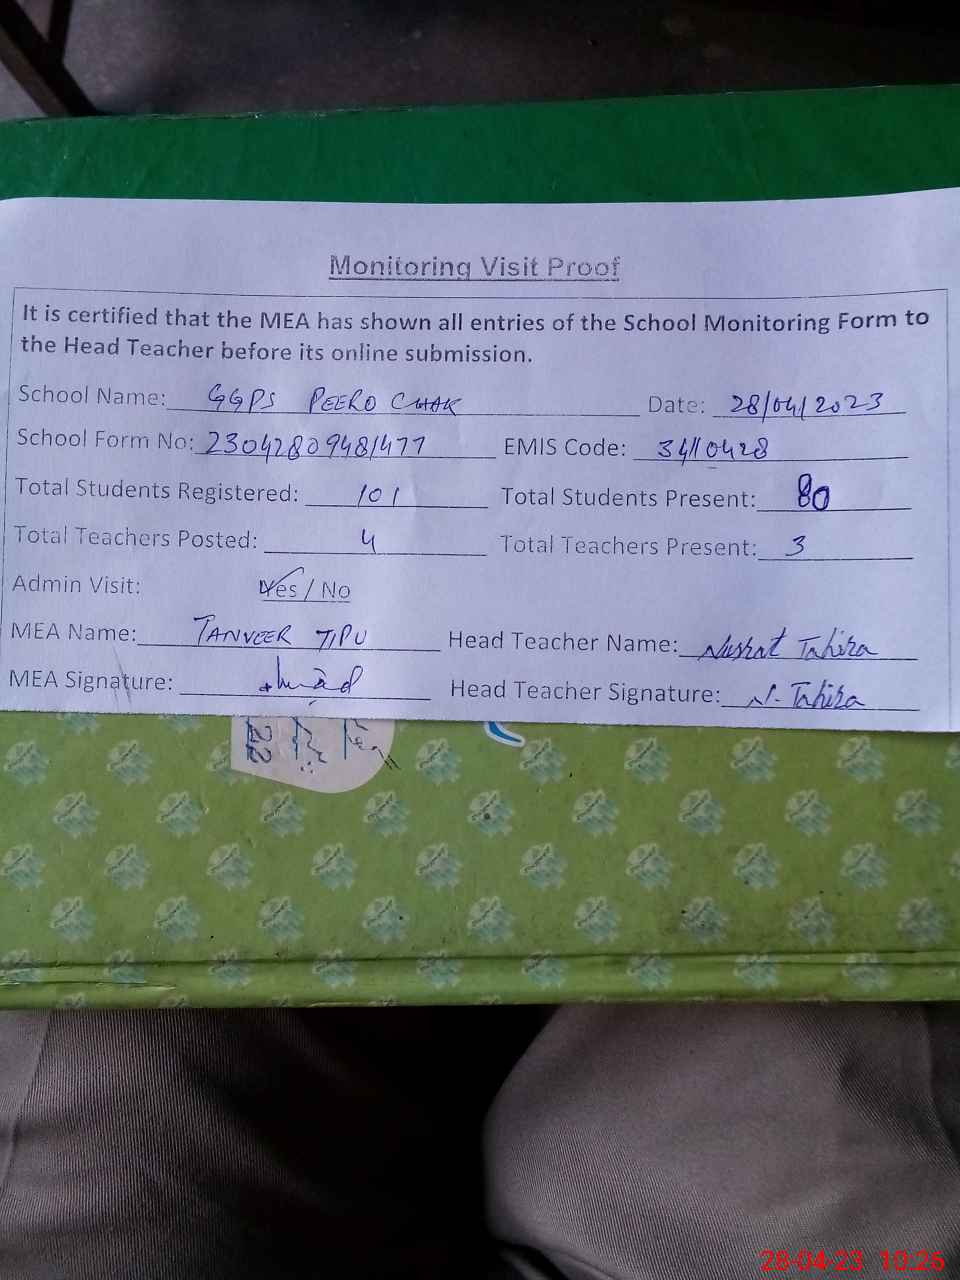 Monitoring Visit Proof
It is certified that the MEA has shown all entries of the School Monitoring Form to
the Head Teacher before its online submission.
School Name: GGPS PEERO CHAK Date: 28/04/2023
School Form No: 23042809481477 EMIS Code: 34110428
Total Students Registered: 101 Total Students Present: 80
Total Teachers Posted: 4 Total Teachers Present: 3
Admin Visit: Yes / No
MEA Name: TANVEER TIPU Head Teacher Name: Nusrat Tahira
MEA Signature: Head Teacher Signature: N. Tahira
28-04-23 10:26